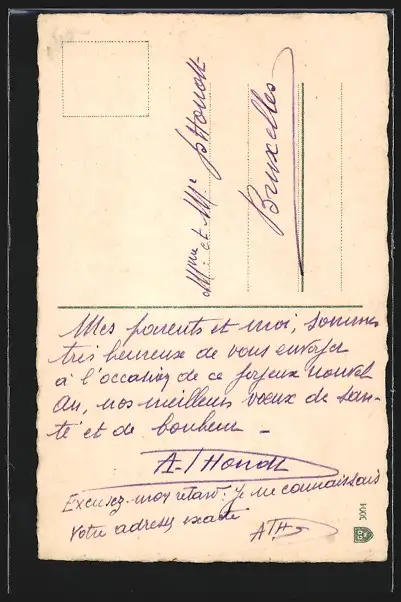 Mme et Mr. D'Hondt
Bruxelles
Mes parents et moi, sommes
très heureux de vous envoyer
à l'occasion de ce joyeux nouvel
An, nos meilleurs vœux de san-
té et de bonheur -
A. D'Hondt
Excusez-moy retard. Je ne connaissais
votre adresse exacte
3004